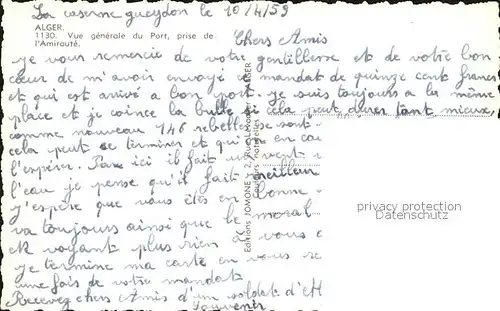 La caserne gueydon le 10/4/59
ALGER.
1130. Vue générale du Port, prise de
l'Amirauté.
Chers Amis
je vous remercie de votre gentillesse et de votre bon
cœur de m'avoir envoyé ce mandat de quinze cent francs
et qui est arrivé a bon port. je suis toujours a la même
place et je coince la bulle si cela peut durer tant mieux,
comme nouveau 146 rebelles se sont
cela peut se terminer et qui en
l'espérer. Par ici il fait un vent
l'eau je pense qu'il fait meilleur
j'espère que vous êtes en bonne
va toujours ainsi que le moral
et voyant plus rien a vous
je termine ma carte en vous
une fois de votre mandat
Recevez chers Amis d'un soldat d'
Souvenir
Editions JOMONE - 2, Rue Livingstone - ALGER
Couleurs naturelles
privacy protection
Datenschutz